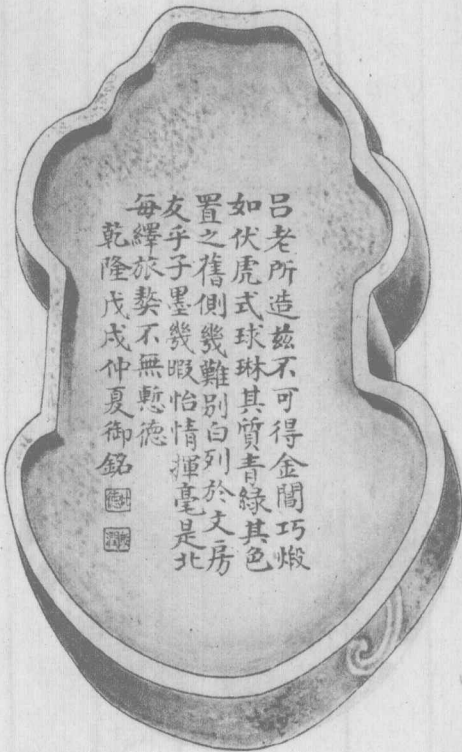 呂老所造茲不可得金閶巧煅
如伏虎式球琳其質青綠其色
置之舊側幾難別白列於文房
友乎子墨幾暇怡情揮毫是北
每繹旅獒不無慙德
乾隆戊戌仲夏御銘